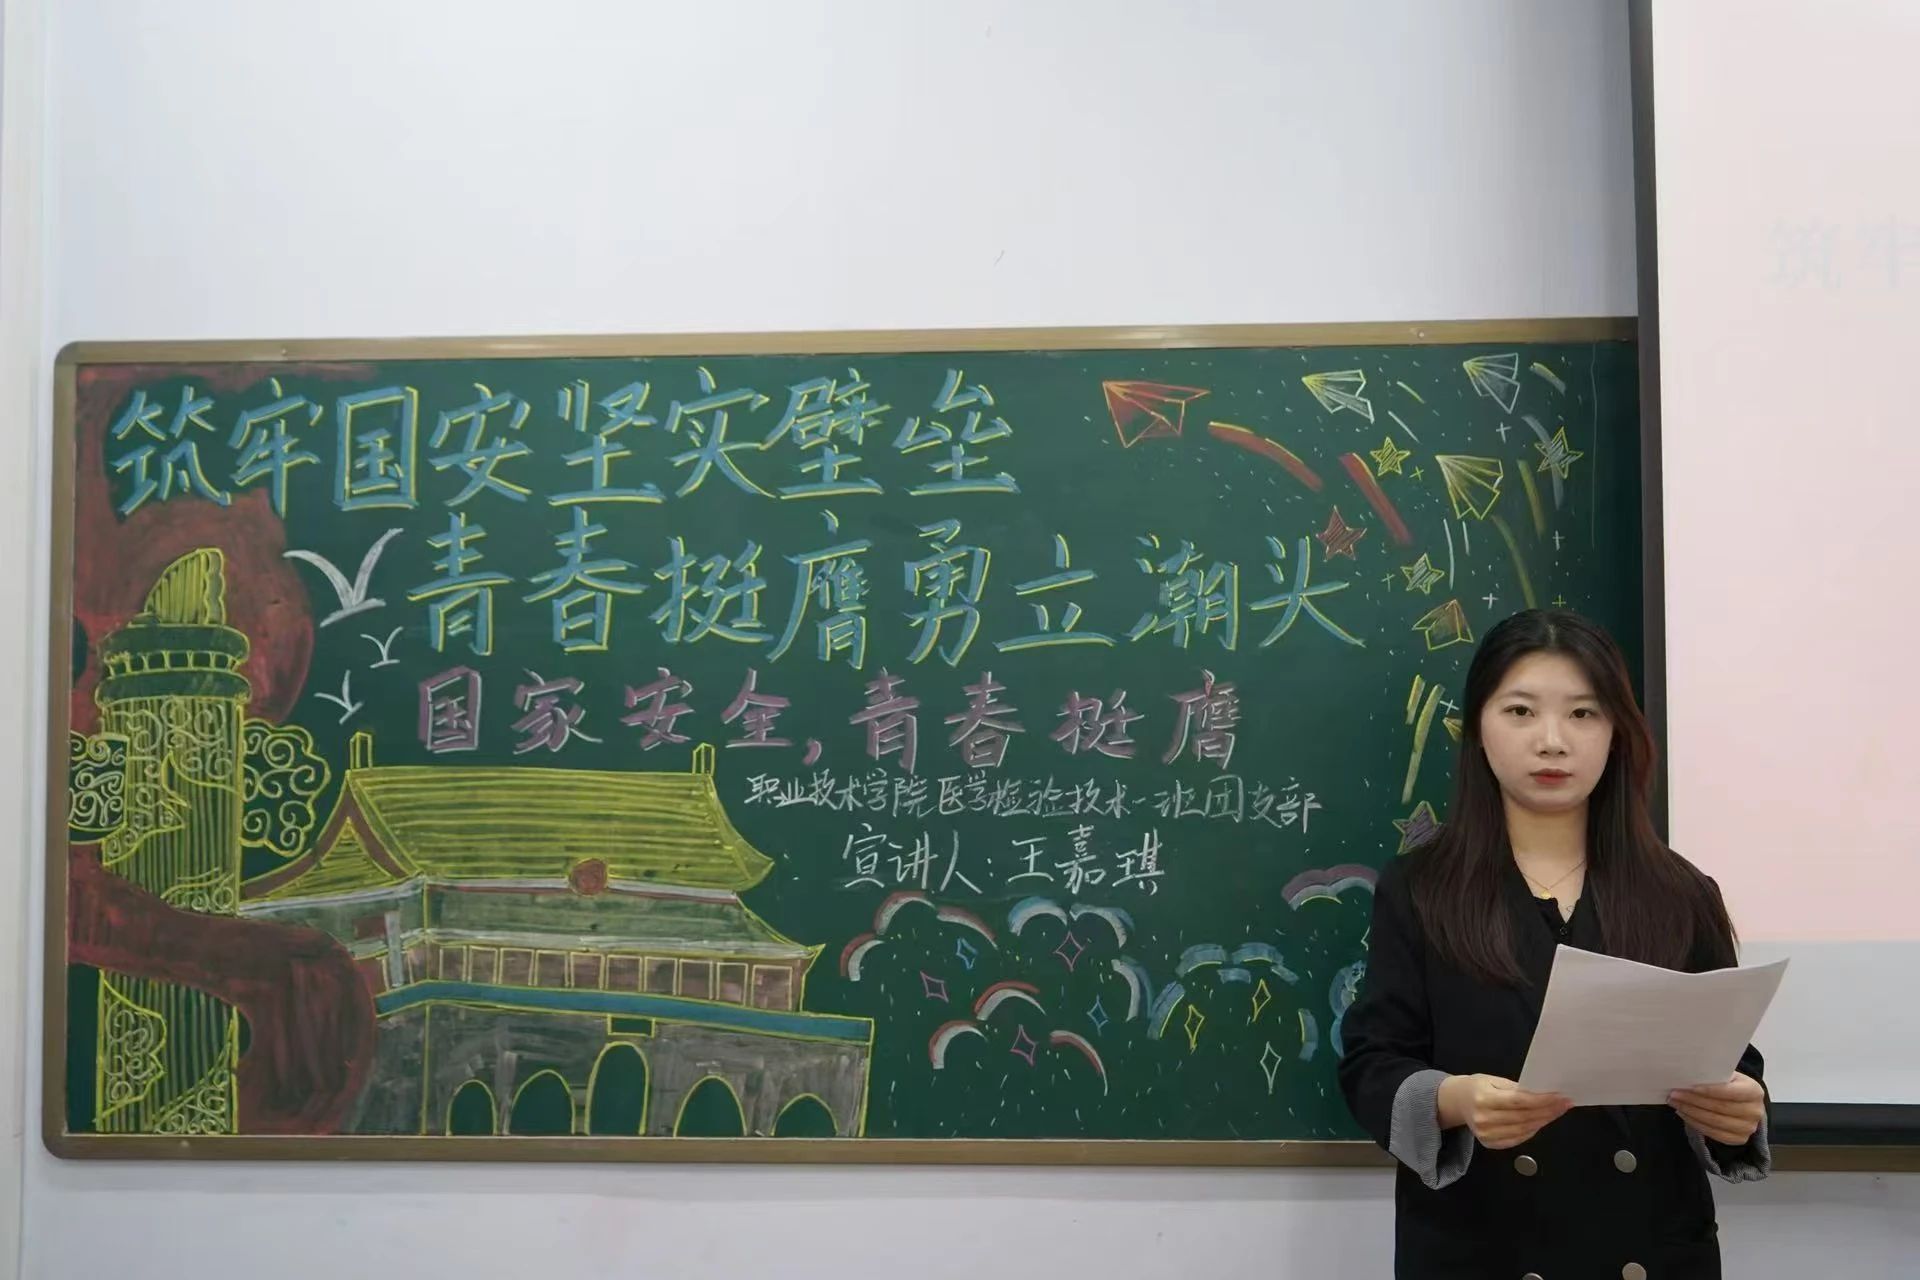 筑牢国安坚实壁垒
青春挺膺勇立潮头
国家安全,青春挺膺
职业技术学院医学检验技术一班团支部
宣讲人:王嘉琪
筑牢